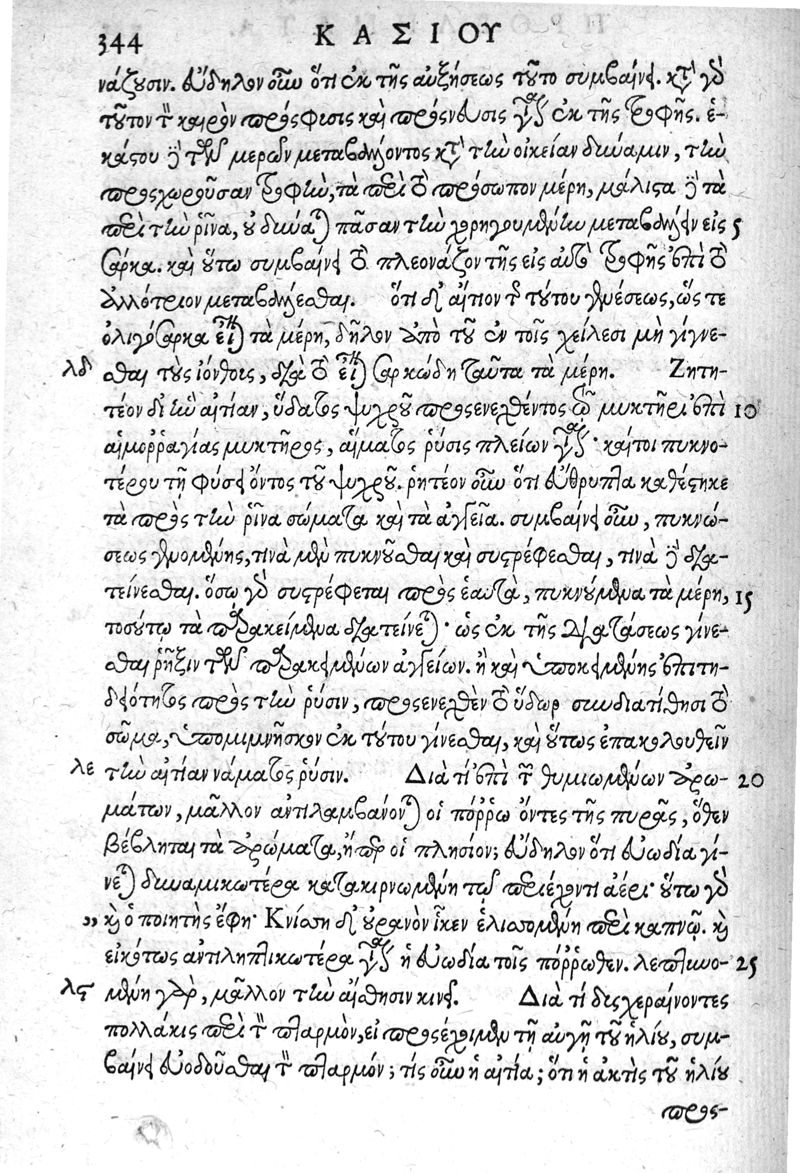 344 ΚΑΣΙΟΥ
νάζουσιν. εὔδηλον οὖν ὅτι ἐκ τῆς αὐξήσεως τοῦτο συμβαίνει. κατὰ γὰρ
τοῦτον τὸν καιρὸν πρόςφισις καὶ πρόςνευσις γίνεται ἐκ τῆς τροφῆς. ἑ-
κάστου δὲ τῶν μερῶν μεταβάλλοντος κατὰ τὴν οἰκείαν δύναμιν, τὴν
προςχωροῦσαν τροφὴν, τὰ περὶ τὸ πρόσωπον μέρη, μάλιστα δὲ τὰ
περὶ τὴν ῥῖνα, οὐ δύναται πᾶσαν τὴν χορηγουμένην μεταβάλλειν εἰς 5
σάρκα. καὶ οὕτω συμβαίνει τὸ πλεονάζον τῆς εἰς αὐτὰ τροφῆς ἐπὶ τὸ
ἀλλότριον μεταβάλλεσθαι. ὅτι δ' αἴτιον τῆς τούτου γενέσεως, ὥς τε
ὀλιγόσαρκα εἶναι τὰ μέρη, δῆλον ἀπὸ τοῦ ἐν τοῖς χείλεσι μὴ γίγνε-
λδ σθαι τοὺς ἰόνθους, διὰ τὸ εἶναι σαρκώδη ταῦτα τὰ μέρη. Ζητη-
τέον δι' ἣν αἰτίαν, ὕδατος ψυχροῦ προςενεχθέντος τῷ μυκτῆρι ἐπὶ 10
αἱμοῤῥαγίας μυκτῆρος, αἵματος ῥύσις πλείων γίνεται· καίτοι πυκνο-
τέρου τῇ φύσει ὄντος τοῦ ψυχροῦ. ῥητέον οὖν ὅτι εὔθρυπτα καθέστηκε
τὰ πρὸς τὴν ῥῖνα σώματα καὶ τὰ ἀγγεῖα. συμβαίνει οὖν, πυκνώ-
σεως γενομένης, τινὰ μὲν πυκνοῦσθαι καὶ συστρέφεσθαι, τινὰ δὲ δια-
τείνεσθαι. ὅσῳ γὰρ συστρέφεται πρὸς ἑαυτὰ, πυκνούμενα τὰ μέρη, 15
τοσούτῳ τὰ παρακείμενα διατείνεται· ὡς ἐκ τῆς διατάσεως γίνε-
σθαι ῥῆξιν τῶν παρακειμένων ἀγγείων. ἢ καὶ ὑποκειμένης ἐπιτη-
δειότητος πρὸς τὴν ῥύσιν, προςενεχθὲν τὸ ὕδωρ συνδιατίθησι τὸ
σῶμα, ὑπομιμνῆσκον ἐκ τούτου γίνεσθαι, καὶ οὕτως ἐπακολουθεῖν
λε τὴν αἰτίαν νάματος ῥύσιν. Διὰ τί ἐπὶ τῶν θυμιωμένων ἀρω- 20
μάτων, μᾶλλον ἀντιλαμβάνονται οἱ πόῤῥω ὄντες τῆς πυρᾶς, ὅθεν
βέβληται τὰ ἀρώματα, ἤπερ οἱ πλησίον; εὔδηλον ὅτι εὐωδία γί-
νεται δυναμικωτέρα κατακιρνωμένη τῷ περιέχοντι ἀέρι· οὕτω γὰρ
,, καὶ ὁ ποιητὴς ἔφη· Κνίσση δ' οὐρανὸν ἷκεν ἑλισσομένη περὶ καπνῷ. καὶ
εἰκότως ἀντιληπτικωτέρα γίνεται ἡ εὐωδία τοῖς πόῤῥωθεν. λεπτυνο- 25
λϛ μένη γὰρ, μᾶλλον τὴν αἴσθησιν κινεῖ. Διὰ τί δυςχεραίνοντες
πολλάκις περὶ τὸν πταρμὸν, εἰ προςέχοιμεν τῇ αὐγῇ τοῦ ἡλίου, συμ-
βαίνει εὐοδοῦσθαι τὸν πταρμόν; τίς οὖν ἡ αἰτία; ὅτι ἡ ἀκτὶς τοῦ ἡλίου
προς-